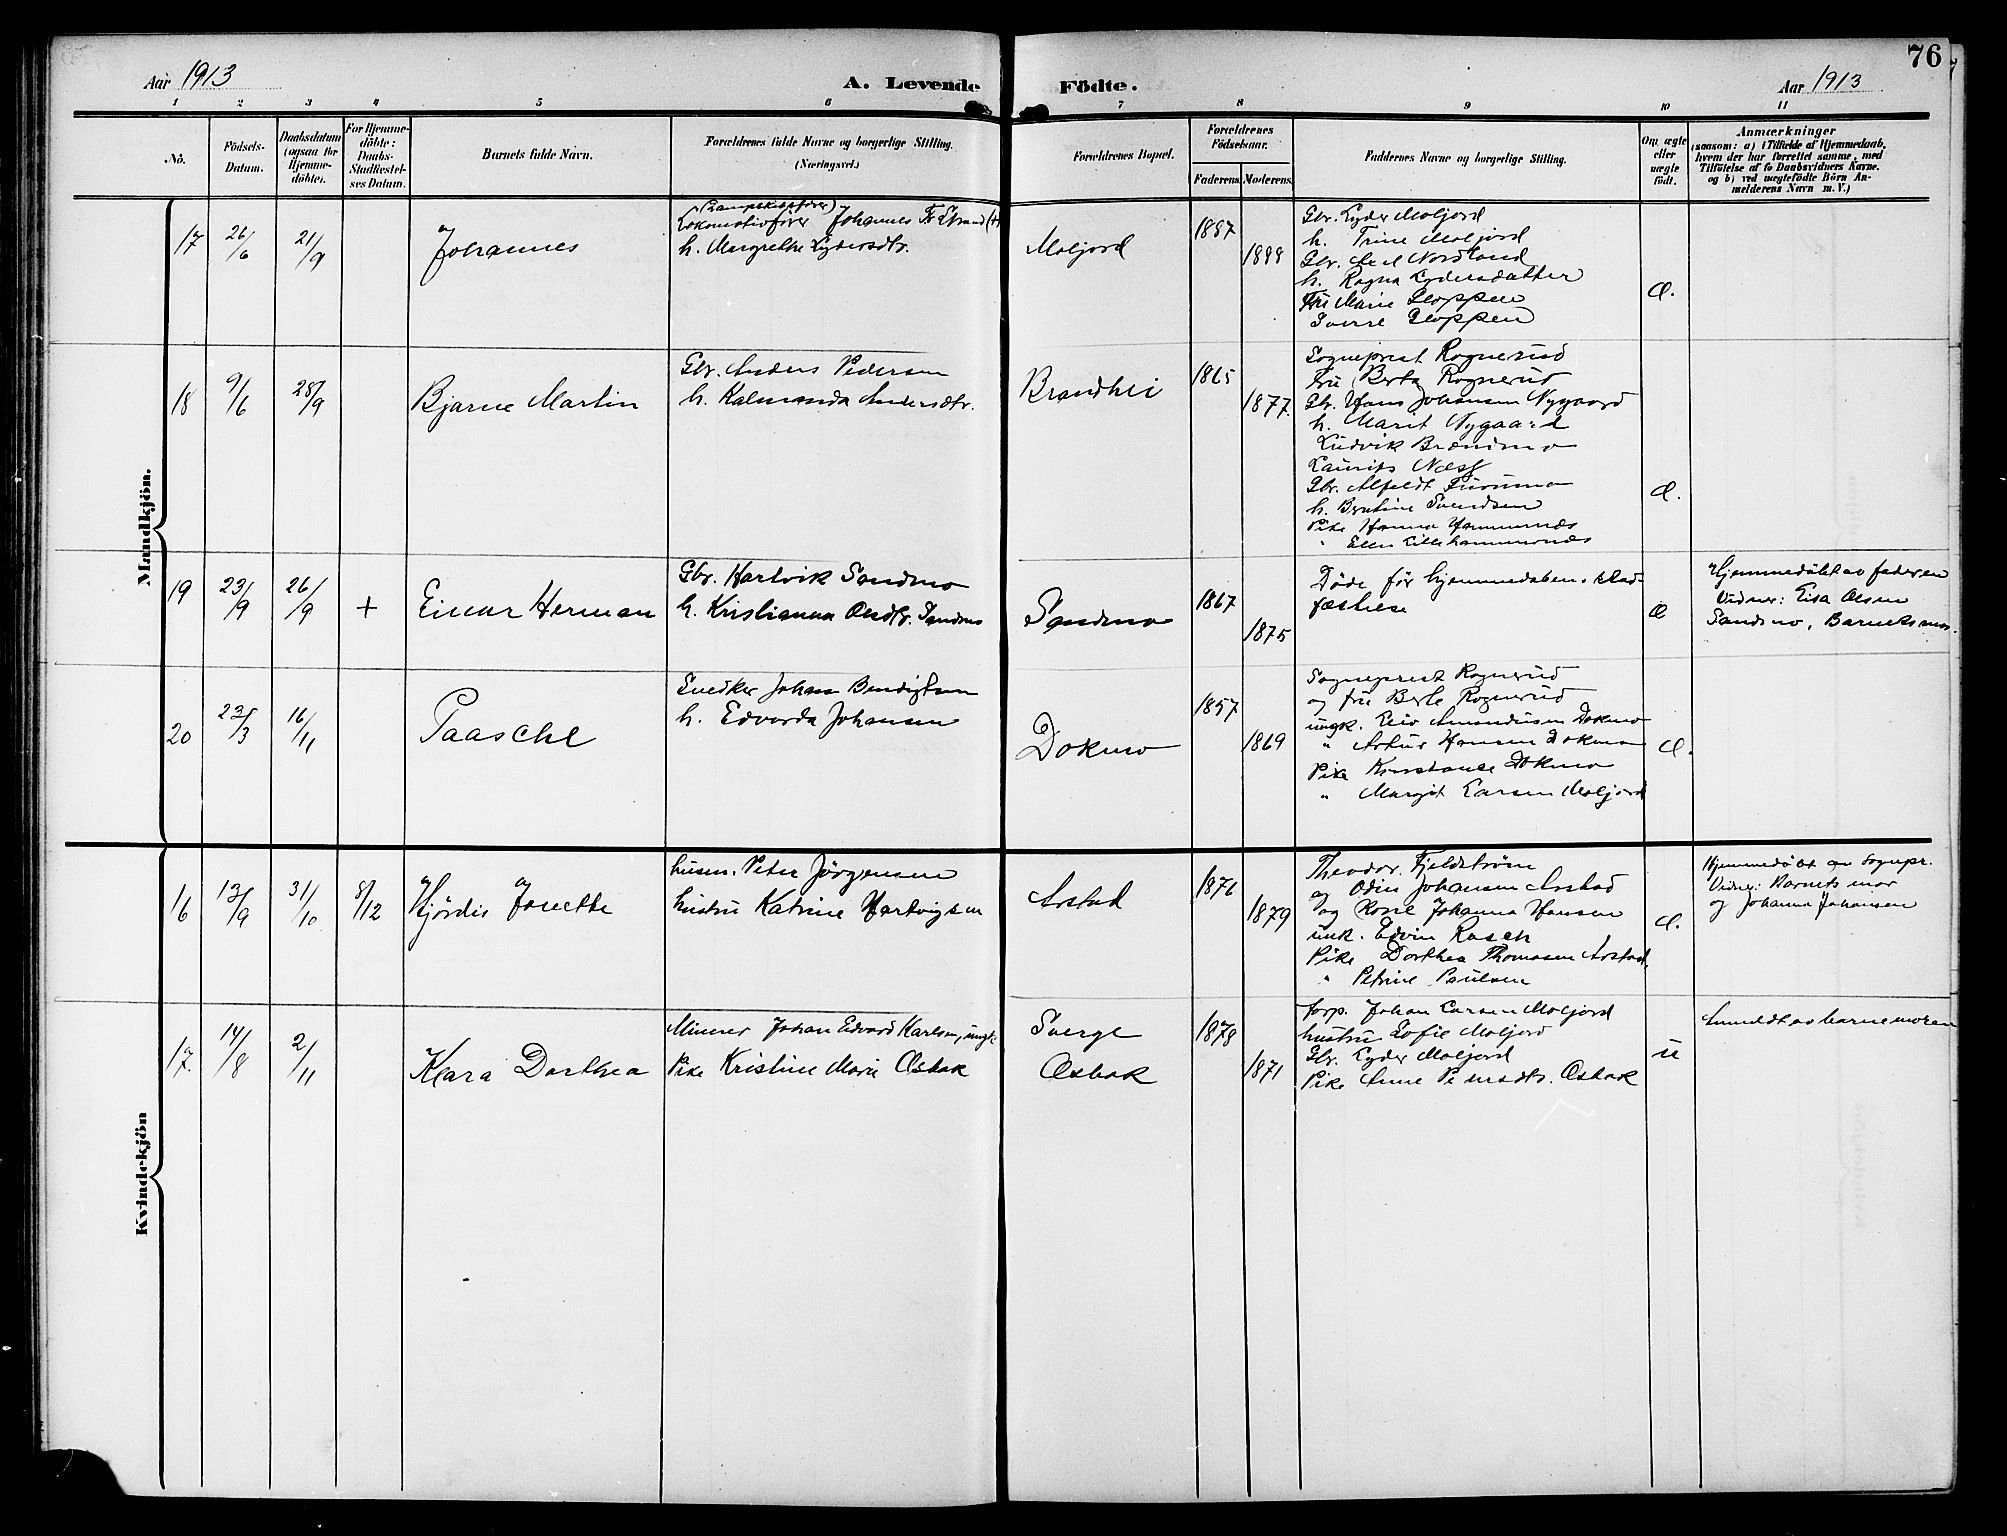 76
Aar 1913
A. Levende Födte.
Aar 1913
1 2 3 4 5 6 7 8 9 10 11
No.
Födsels-Datum.
Daabsdatum (ogsaa for Hjemme-döbte).
For Hjemme-döbte: Daabs-Stadfæstel-ses Datum.
Barnets fulde Navn.
Forældrenes fulde Navne og borgerlige Stilling.
(Næringsvei.)
Forældrenes Bopæl.
Forældrenes Födselsaar.
Faderens. Moderens.
Faddernes Navne og borgerlige Stilling.
Om ægte eller uægte födt.
Anmærkninger
(saasom: a) i Tilfælde af Hjemmedaab, hvem der har forrettet samme, med Tilföielse af to Daabsvidners Navne, og b) ved uægtefödte Börn An-melderens Navn m. V.)
Mandkjön.
17 26/6 21/9 Johannes
Lokomotivfører Johannes Strand (+)
h. Margrethe Lydersdtr.
Moljord
1887
1888
Gbr. Lyder Moljord
h. Trine Moljord
Gbr. Nordland
h. Ragna Lydersdatter
Fru Marie Gloppen
Gloppen
Æ.
18 9/6 28/9 Bjarne Martin
Gbr. Anders Pedersen
h. Kalmanda Andersdtr.
Brandhei
1865
1877.
Sogneprest Rognerud
Fru Berta Rognerud
Gbr. Hans Johansen Nygaard
h. Marit Nygaard
Ludvik Brændmo
Laurits Næss
Gbr. Alfeldt Furumo
h. Bertine Svendsen
Pike Hanna Hammernæs
" Ellen Lillehammernæs
Æ.
19 23/9 26/9 + Einar Herman
Gbr. Hartvik Sandmo
h. Kristianna Olsdtr. Sandmo
Sandmo
1867
1875
Døde før hjemmedaabens stad-
fæstelse
Æ
Hjemmedøbt av faderen
Vidner: Elsa Olsen
Sandmo, Barnets mor.
20 23/3 16/11 Paasche
Snedker Johan Bendigtsen
h. Edvarda Johansen
Dokmo
1857
1869
Sogneprest Rognerud
og fru Berte Rognerud
ungk. Amandusen Dokmo
" Artur Hansen Dokmo
Pike Konstanse Dokmo
" Margit Larsen Moljord
Æ.
Kvindekjön
16 13/9 31/10 8/12 Hjördis Josette
husm. Peter Jörgensen
hustru Katrine Hartvigsen
Arstad
1876
1879
Theodor Fjeldstrøm
og Odin Johansen Arstad
og Johanna Hansen
unk. Edvin Rasch
Pike Dorthea Thomasen Arstad,
" Petrine Paulsen
Æ.
Hjemmedøbt av Sognepr.
Vidner: Barnets mor
og Johanna Johansen
17. 14/8 2/11 Klara Dorthea
Minner Johan Edvard Karlsen, ungk.
Pike Kristine Marie Osbak
Sverge
Osbak
1878
1871
forp. Johan Larsen Moljord
hustru Sofie Moljord
Gbr. Lyder Moljord
Pike Anne Pedersdtr. Osbak
u
Anmeldt av barnemoren